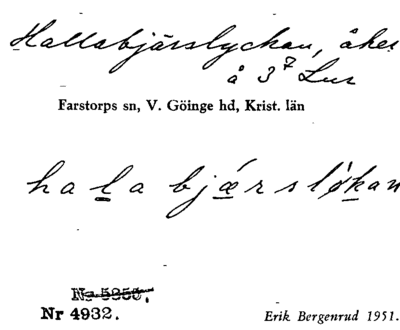 Hallabjärslyckan, åker
å 3⁷ Lur
Farstorps sn, V. Göinge hd, Krist. län
hala bjǽrsløkan
Nr 4932.
Erik Bergenrud 1951.